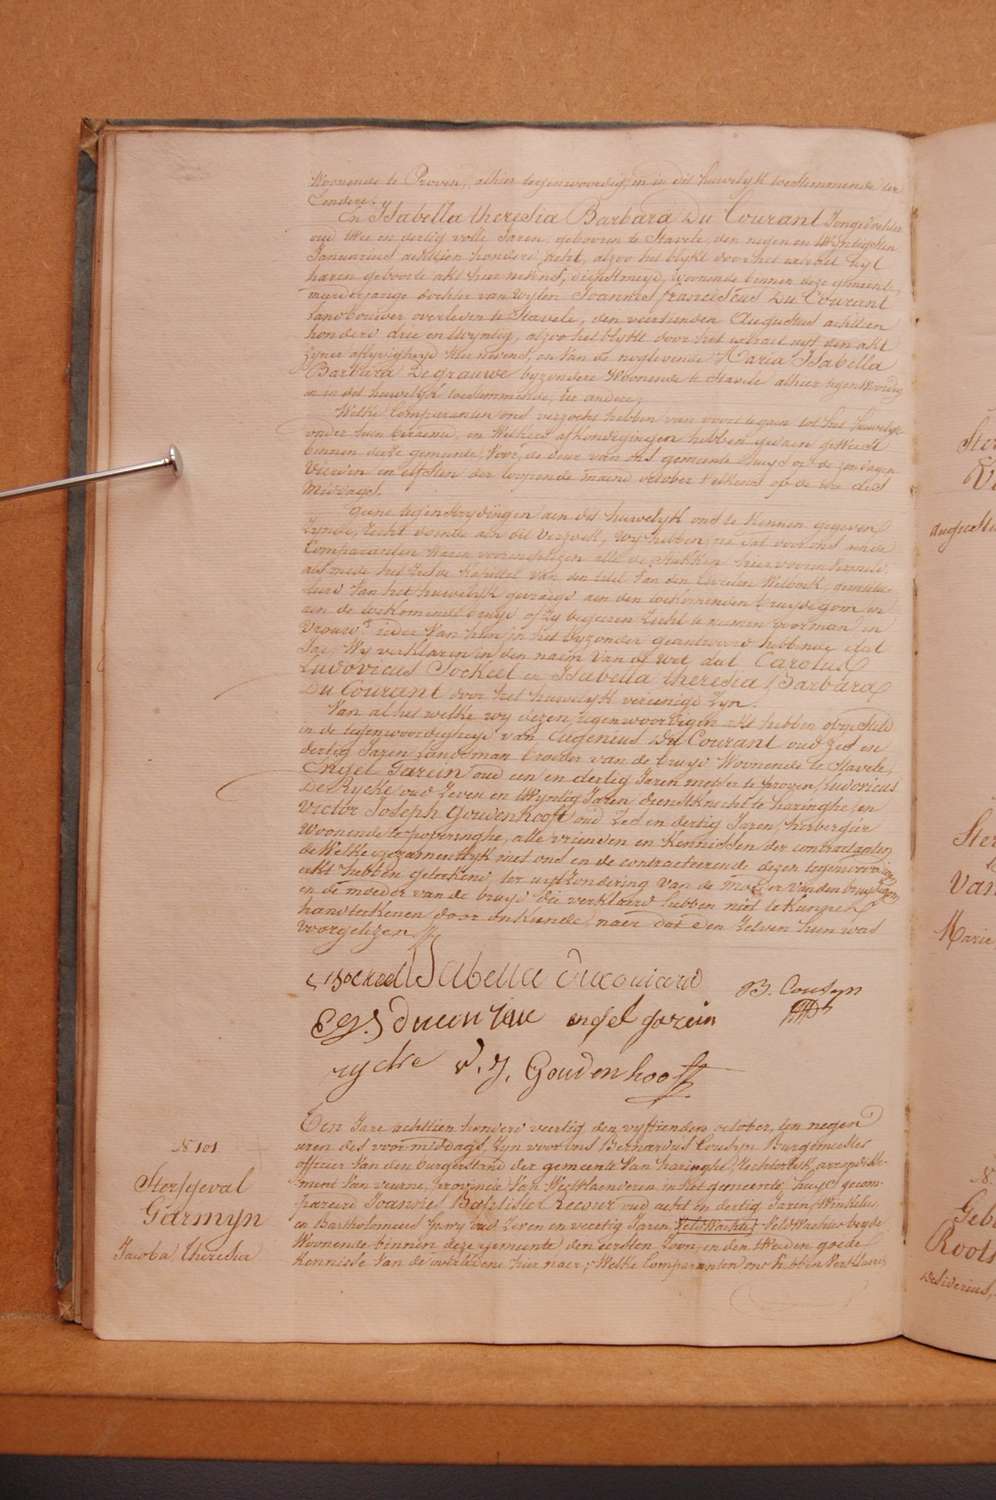 Woonende te Proven, alhier tegenwoordig en in dit huwelyk toestemmende ter
Eendere.
En Isabella theresia Barbara Du Courant Jongedochter
oud twee en dertig volle Jaren, gebooren te Stavele, den negen en twintigsten
Januarius achttien honderd acht, alzoo het blykt door het extrakt uyt
haren geboorte akt hier nevens, dienstmeyd, woonende binnen deze gemeente
meerderjarige dochter van wylen Joannes franciscus Du Courant
landbouwer overleden te Stavele, den veertienden Augustus achttien
honderd drie en twyntig, alzoo het blykt door het extract uyt den akt
zyner aflyvigheyd hier nevens, en van de noglevende Maria Isabella
Barbara Degrauwe byzondere Woonende te Stavele alhier tegenwoordig
en in dit huwelyk toestemmende, ter andere,
Welke Comparanten ons verzocht hebben van voort te gaen tot het huwelyk
onder hun beraemd, en welkers afkondigingen hebben gedaen geweest
binnen deze gemeente, voor de deur van ons gemeente huys op de zondagen
vierden en elfsten der loopende maend october telkens op de ure des
Middags.
Geene tegenstrydingen aen dit huwelyk ons te kennen gegeven
zynde, recht doende aen dit verzoek, wy hebben, na dat voor ons aen de
Comparanten waren voorengelezen alle de stukken hier voren vermeld,
als mede het zesde kapittel van den titel van den Civielen Wetboek, geintitu-
leerd van het huwelyk gevraegd aen den toekomenden bruydegom en
aen de toekomende bruyd of zy begeeren zich te nemen voor man en
Vrouw; ieder van hun in het byzonder geantwoord hebbende dat
Ja; Wy verklaren in den naem van de wet, dat Carolus
Ludovicus Jockeel en Isabella theresia Barbara
Du Courant door het huwelyk vereenigd zyn.
Van al het welke wy dezen tegenwoordigen akt hebben opgesteld
in de tegenwoordigheyd van Eugenius Du Courant oud zes en
dertig Jaren landsman broeder van de bruyd Woonende te Stavele,
Engel Jarein oud een en dertig Jaren metser te proven, ludovicus
De Rycke oud zeven en twyntig Jaren dienstknecht te haringhe, en
Victor Joseph Goudenhooft oud zes en dertig Jaren, herbergier
Woonende te poperinghe, alle vrienden en kennissen der contractanten
de Welke gezamentlyk met ons en de contracteerende dezen tegenwoordigen
akt hebben geteekend, ter uytzondering van de moeder van den bruydegom
en de moeder van de bruyd die verklaerd hebben niet te kunnen
handteekenen door onkunde, naer dat den zelven hun was
voorgelezen.
Isabella ducourard
B. Cousyn
engel gorein
rycke V. J. Goudenhooft
N 101
Sterfgeval
Garmyn
Jacoba, theresia
Den Jare achttien honderd veertig, den vyftienden october, ten negen
uren des voormiddags, zyn voor ons Bernardus Cousyn Burgemeester
officier van den burgerstand der gemeente van haringhe, Rechterlyk arrondisse-
ment van veurne, provincie van Westvlaenderen, in het gemeente huys gecom-
pareerd Joannes Baptiste Lecour oud acht en dertig Jaren, Winkelier
en Bartholomeus Jary oud zeven en veertig Jaren, veldwachter, beyde
Woonende binnen deze gemeente den eersten zoon en den tweeden goede
kennisse van de overledene hier naer; Welke Comparanten ons hebben verklaerd
Ster
Augusti
Ster
Van
Marie
N.
Geb
Roots
Desiderius,